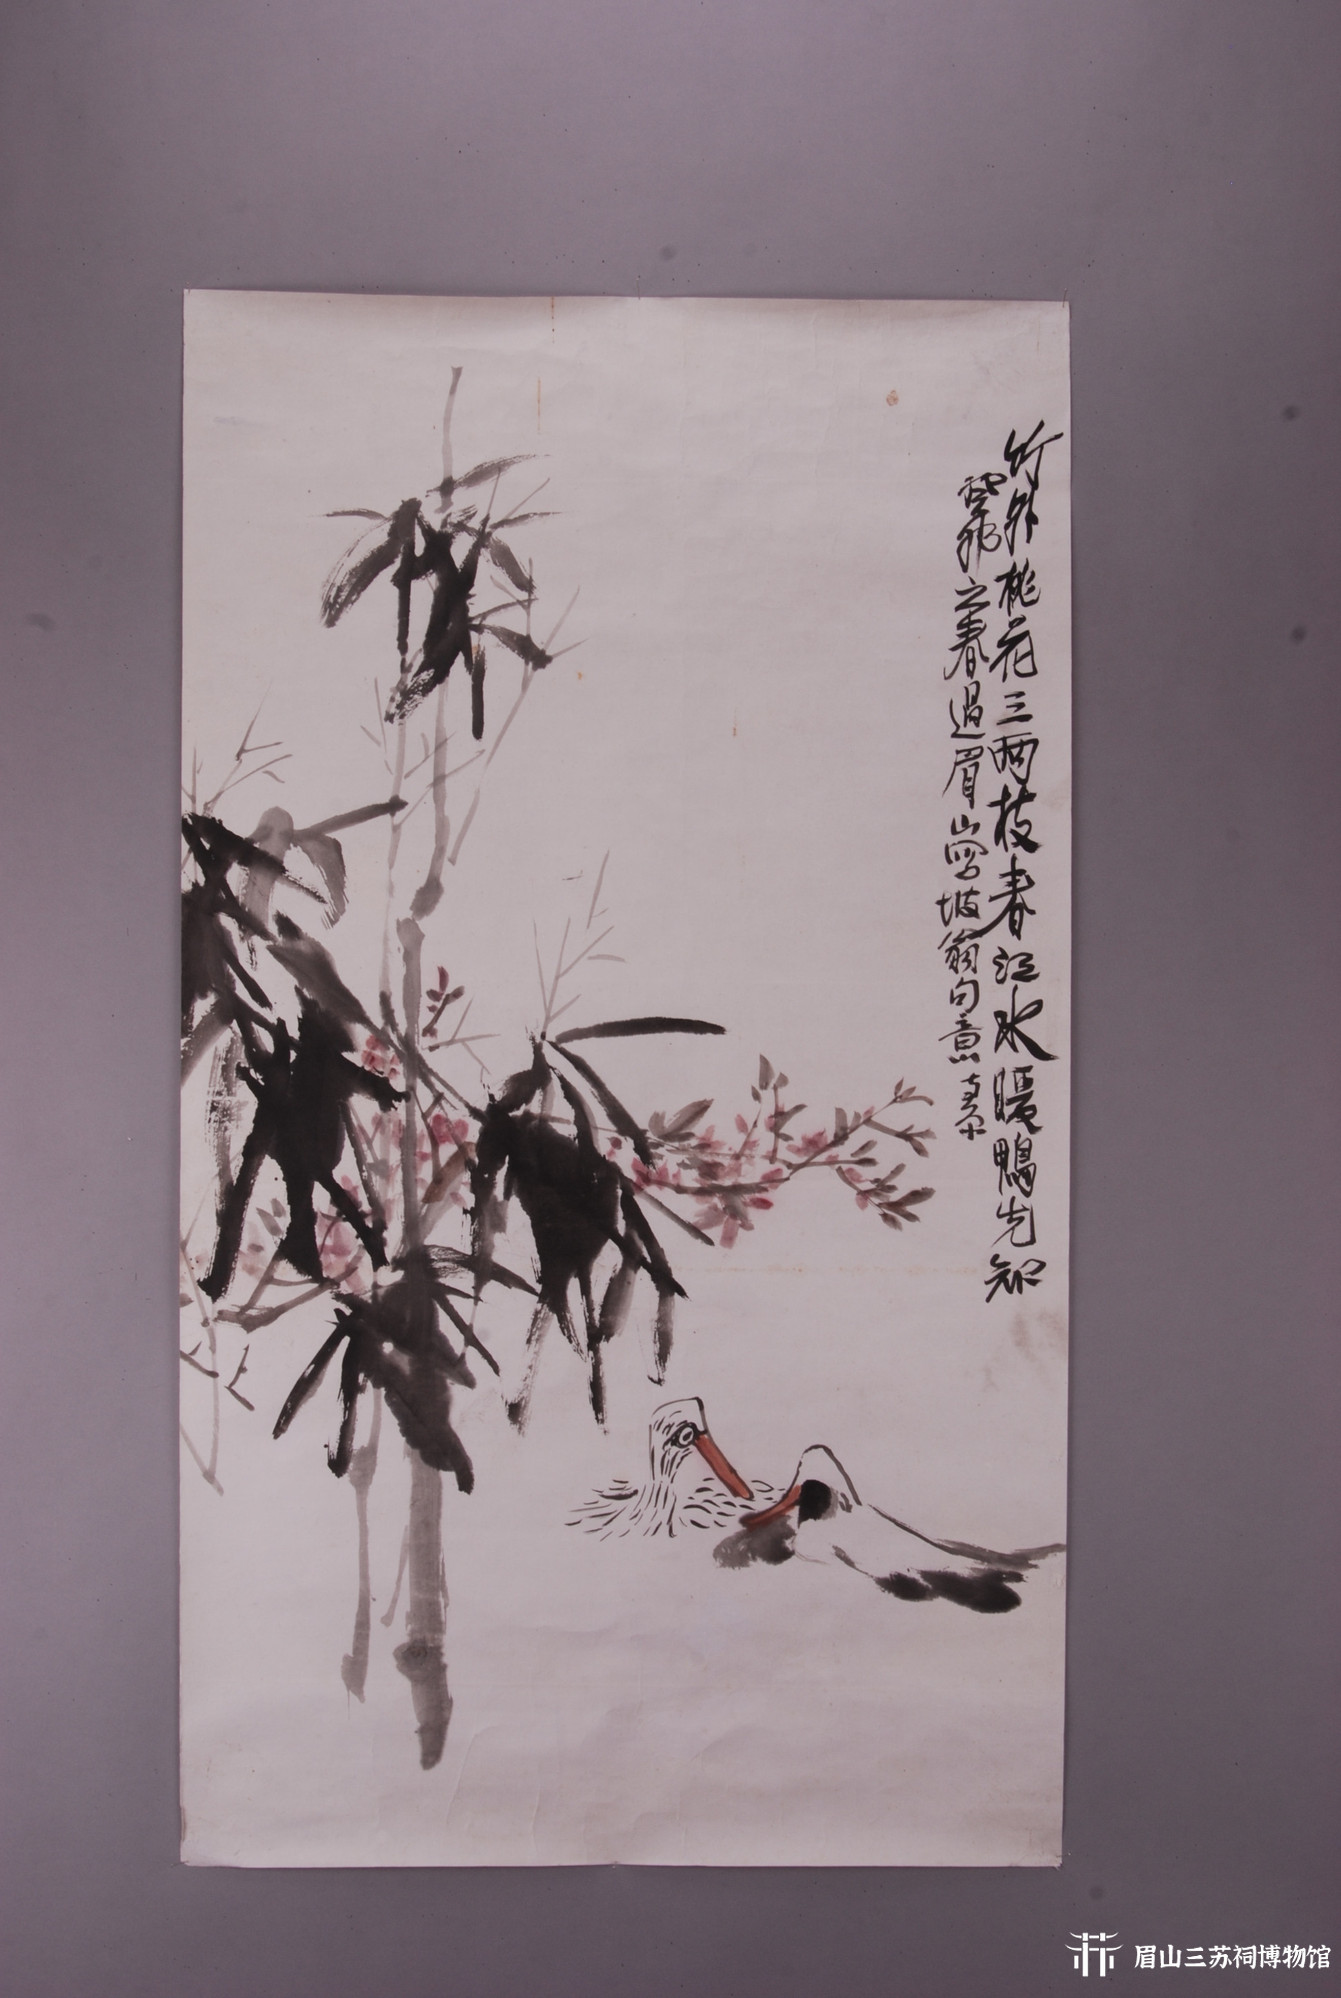 竹外桃花三两枝春江水暖鴨先知
癸卯之春過眉山寫坡翁句意
眉山三苏祠博物馆